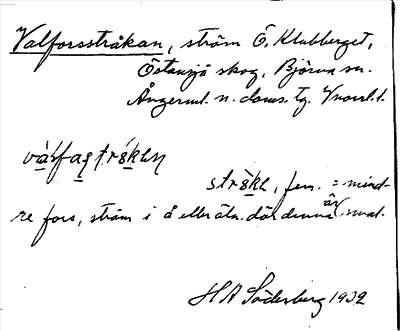 Valforsstråkan, ström Ö. Klubberget,
Östansjö skog, Björna sn.
Ångerml. n. doms. tg. Vnorrl. l.
străkl, fem. = mind-
re fors, ström i å eller älv där denna är smal.
H A Söderberg 1932